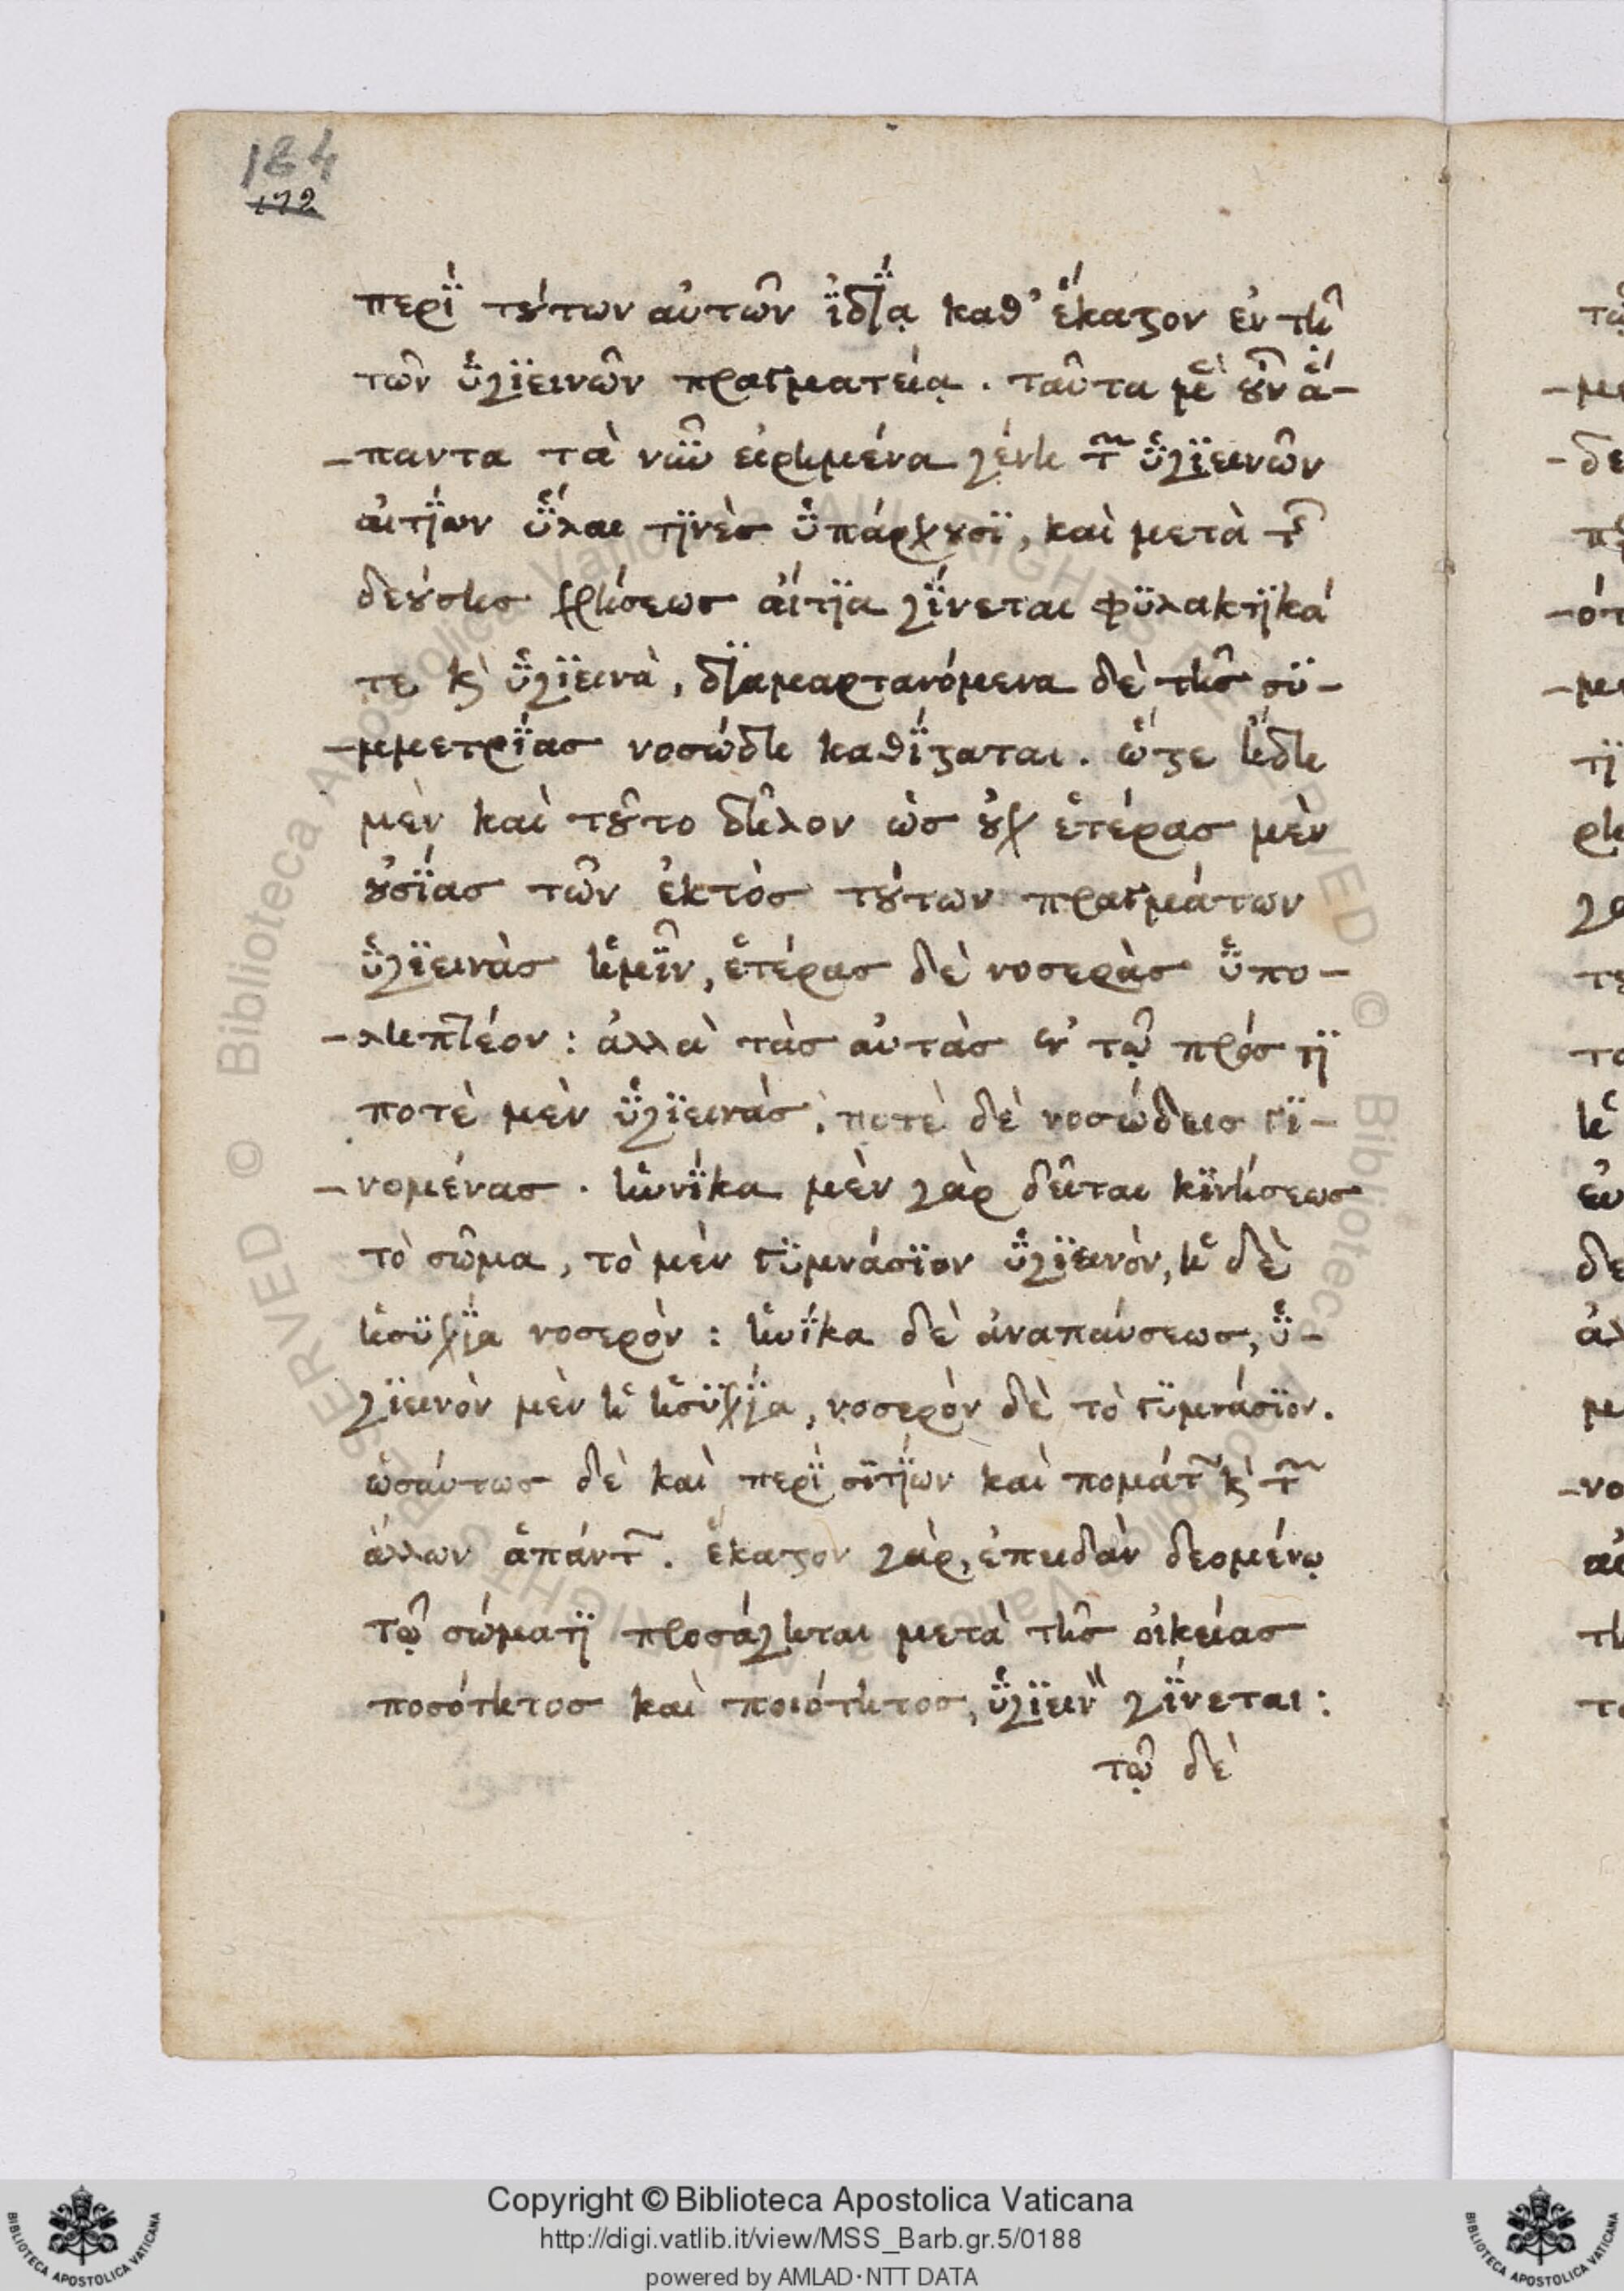 184
172
περὶ τούτων αὐτῶν ἰδίᾳ καθ' ἕκαστον ἐν τῆ
τῶν ὑγιεινῶν πραγματείᾳ. ταῦτα μὲν οὖν ἅ-
-παντα τὰ νῦν εἰρημένα γένη τῶν ὑγιεινῶν
αἰτίων ὗλαι τινὲς ὑπάρχουσι, καὶ μετὰ τῆς
δεούσης χρήσεως αἴτια γίνεται φυλακτικά
τε καὶ ὑγιεινὰ, διαμαρτανόμενα δὲ τῆς συ-
-μμετρίας νοσώδη καθίσταται. ὥστε ἤδη
μὲν καὶ τοῦτο δῆλον ὡς οὐχ ἑτέρας μὲν
οὐσίας τῶν ἐκτὸς τούτων πραγμάτων
ὑγιεινὰς ἡμῖν, ἑτέρας δὲ νοσερὰς ὑπο-
-ληπτέον: ἀλλὰ τὰς αὐτὰς ἐν τῷ πρός τι
ποτὲ μὲν ὑγιεινάς, ποτὲ δὲ νοσώδεις γι-
-νομένας. ἡνίκα μὲν γὰρ δεῖται κινήσεως
τὸ σῶμα, τὸ μὲν γυμνάσιον ὑγιεινόν, ἡ δὲ
ἡσυχία νοσερὸν: ἡνίκα δὲ ἀναπαύσεως, ὑ-
γιεινὸν μὲν ἡ ἡσυχία, νοσερὸν δὲ τὸ γυμνάσιον.
ὡσαύτως δὲ καὶ περὶ σιτίων καὶ πομάτων καὶ τῶν
ἄλλων ἁπάντων. ἕκαστον γὰρ, ἐπειδὰν δεομένῳ
τῷ σώματι προσάγηται μετὰ τῆς οἰκείας
ποσότητος καὶ ποιότητος, ὑγιεινὸν γίνεται:
τῷ δὲ
Copyright © Biblioteca Apostolica Vaticana
http://digi.vatlib.it/view/MSS_Barb.gr.5/0188
powered by AMLAD·NTT DATA
BIBLIOTECA APOSTOLICA VATICANA
BIBLIOTECA APOSTOLICA VATICANA